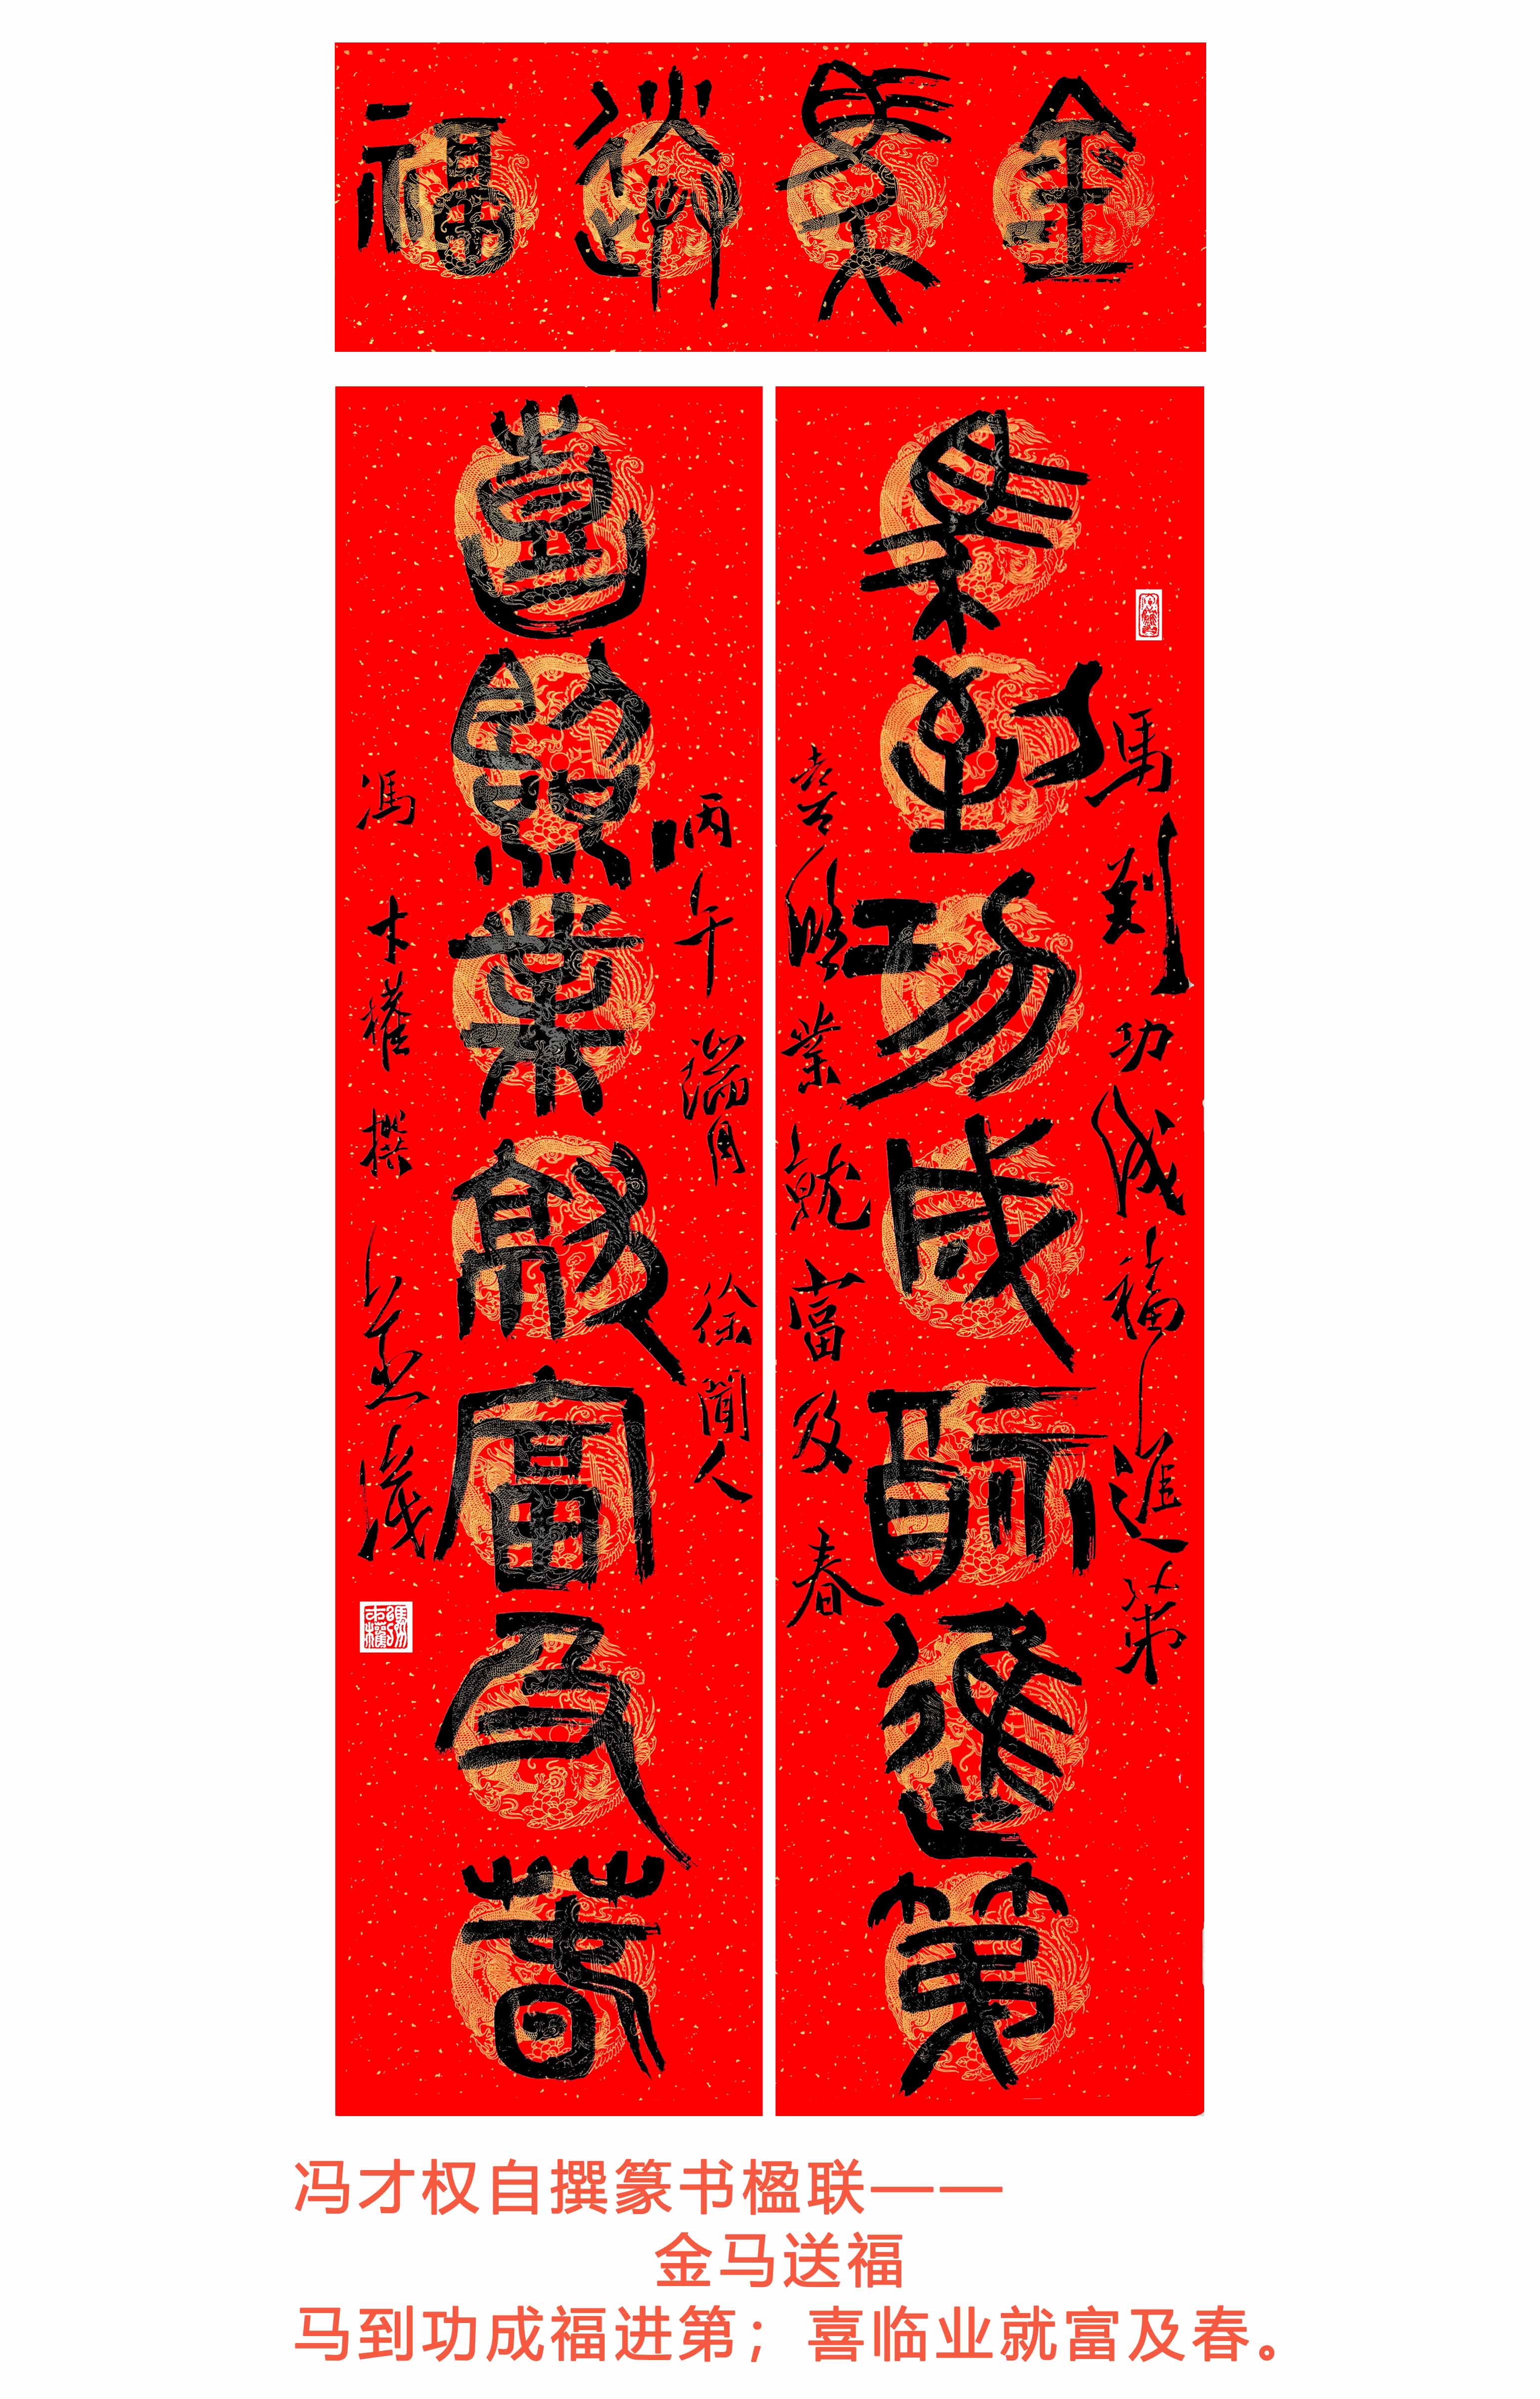 金马送福
马到功成福进第
馬到功成福進第
喜臨業就富及春
喜临业就富及春
丙午端月徐聞人
馮才權撰並識
馮才權
冯才权自撰篆书楹联——
金马送福
马到功成福进第；喜临业就富及春。